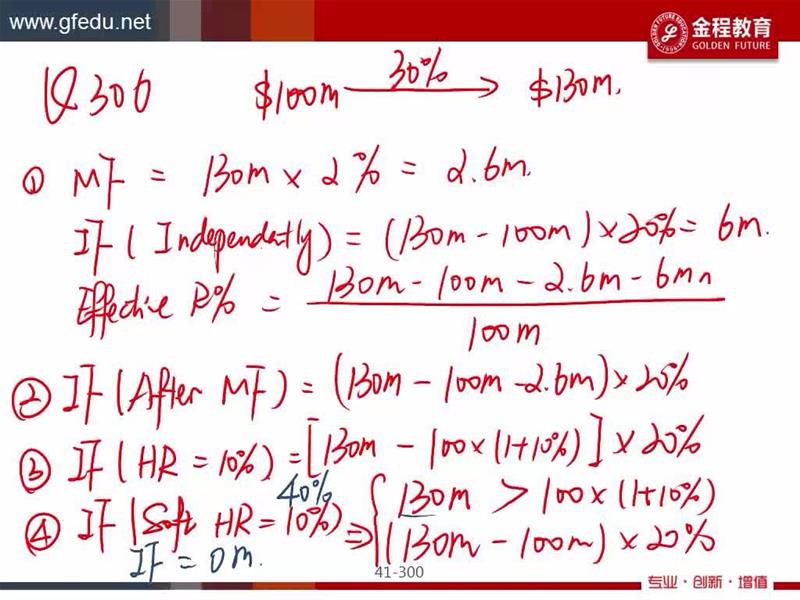 www.gfedu.net
金程教育
GOLDEN FUTURE
Q306 $100m 30% → $130m.
① MF = 130m × 2% = 2.6m.
IF (Independently) = (130m - 100m) × 20% = 6m.
Effective R% = 130m - 100m - 2.6m - 6m
100m
② IF (After MF) = (130m - 100m - 2.6m) × 20%
③ IF (HR = 10%) = [130m - 100 × (1+10%)] × 20%
40%
④ IF (Soft HR = 10%) ⇒ { 130m > 100 × (1+10%)
(130m - 100m) × 20%
IF = 0m.
41-300
专业·创新·增值